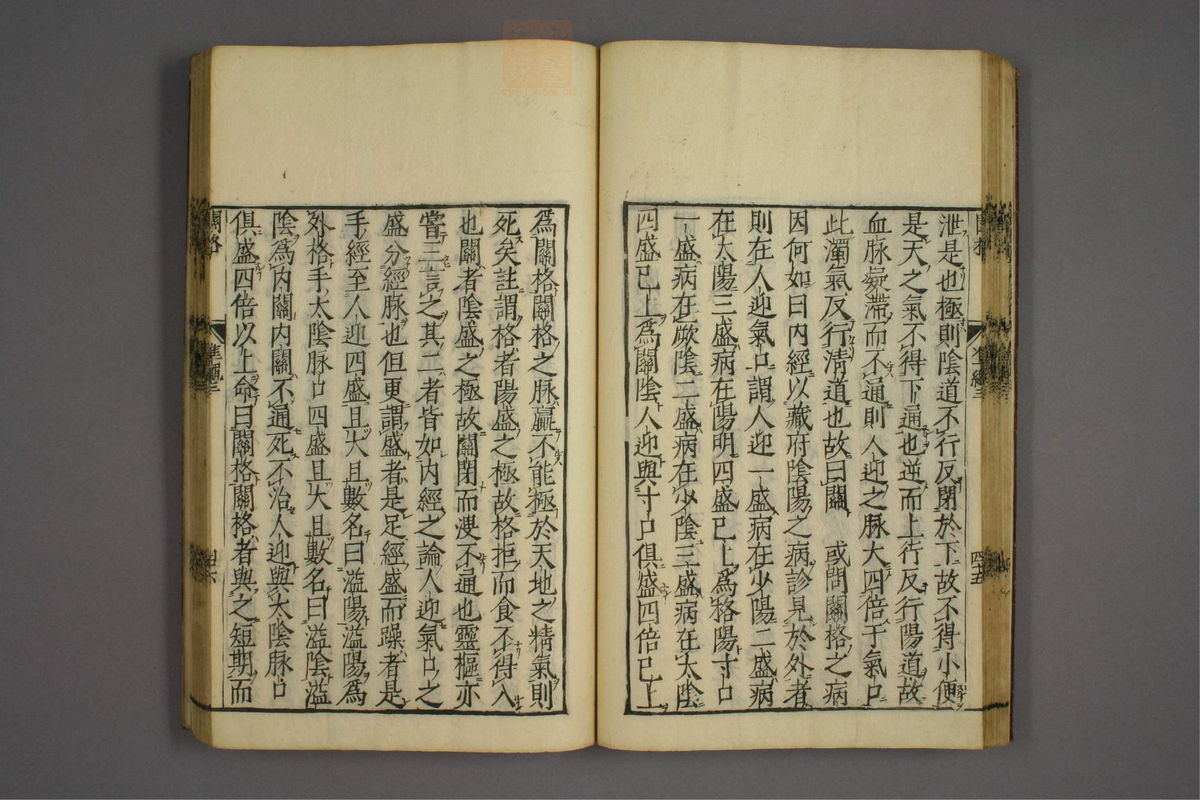 泄是也極則陰道不行反閉於下故不得小便
是天之氣不得下通也逆而上行反行陽道故
血脉凝滯而不通則人迎之脉大四倍于氣口
此濁氣反行清道也故曰關 或問關格之病
因何如曰内經以藏府陰陽之病診見於外者
則在人迎氣口謂人迎一盛病在少陽二盛病
在太陽三盛病在陽明四盛已上爲格陽寸口
一盛病在厥陰二盛病在少陰三盛病在太陰
四盛已上爲關陰人迎與寸口俱盛四倍已上
爲關格關格之脉羸不能極於天地之精氣則
死矣註謂格者陽盛之極故格拒而食不得入
也關者陰盛之極故關閉而溲不通也靈樞亦
嘗三言之其二者皆如内經之論人迎氣口之
盛分經脉也但更謂盛者是足經盛而躁者是
手經至人迎四盛且大且數名曰溢陽溢陽爲
外格手太陰脉口四盛且大且數名曰溢陰溢
陰爲内關内關不通死不治人迎與太陰脉口
俱盛四倍以上命曰關格關格者與之短期而
關格